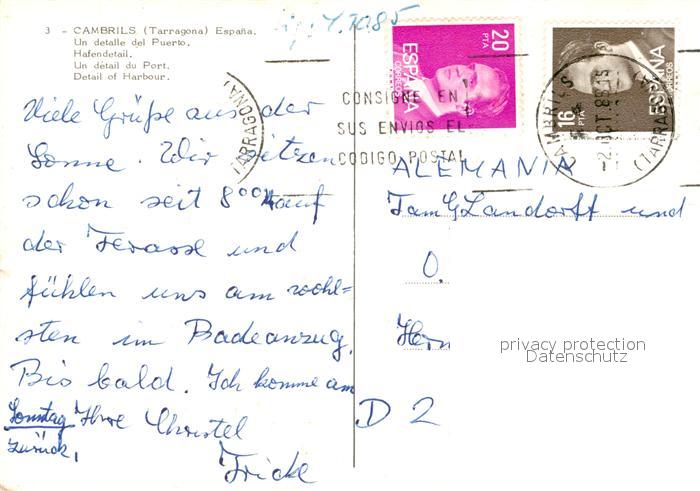 3 - CAMBRILS (Tarragona) España.
Un detalle del Puerto.
Hafendetail.
Un détail du Port.
Detail of Harbour.
7.10.85
Viele Grüße aus der
Sonne. Wir sitzen
schon seit 8°° auf
der Terasse und
fühlen uns am wohl=
sten im Badeanzug.
Bis bald. Ich komme am
Sonntag
zurück,
Ihre Christel
Fricke
20
PTA
ESPAÑA
CORREOS
16
PTA
ESPAÑA
CORREOS
CONSIGNE EN
SUS ENVIOS EL
CODIGO POSTAL
(TARRAGONA)
CAMBRILS
2 OCT. 85
(TARRA
ALEMANIA
Fam G Landorff und
O.
Herrn
privacy protection
Datenschutz
D 2